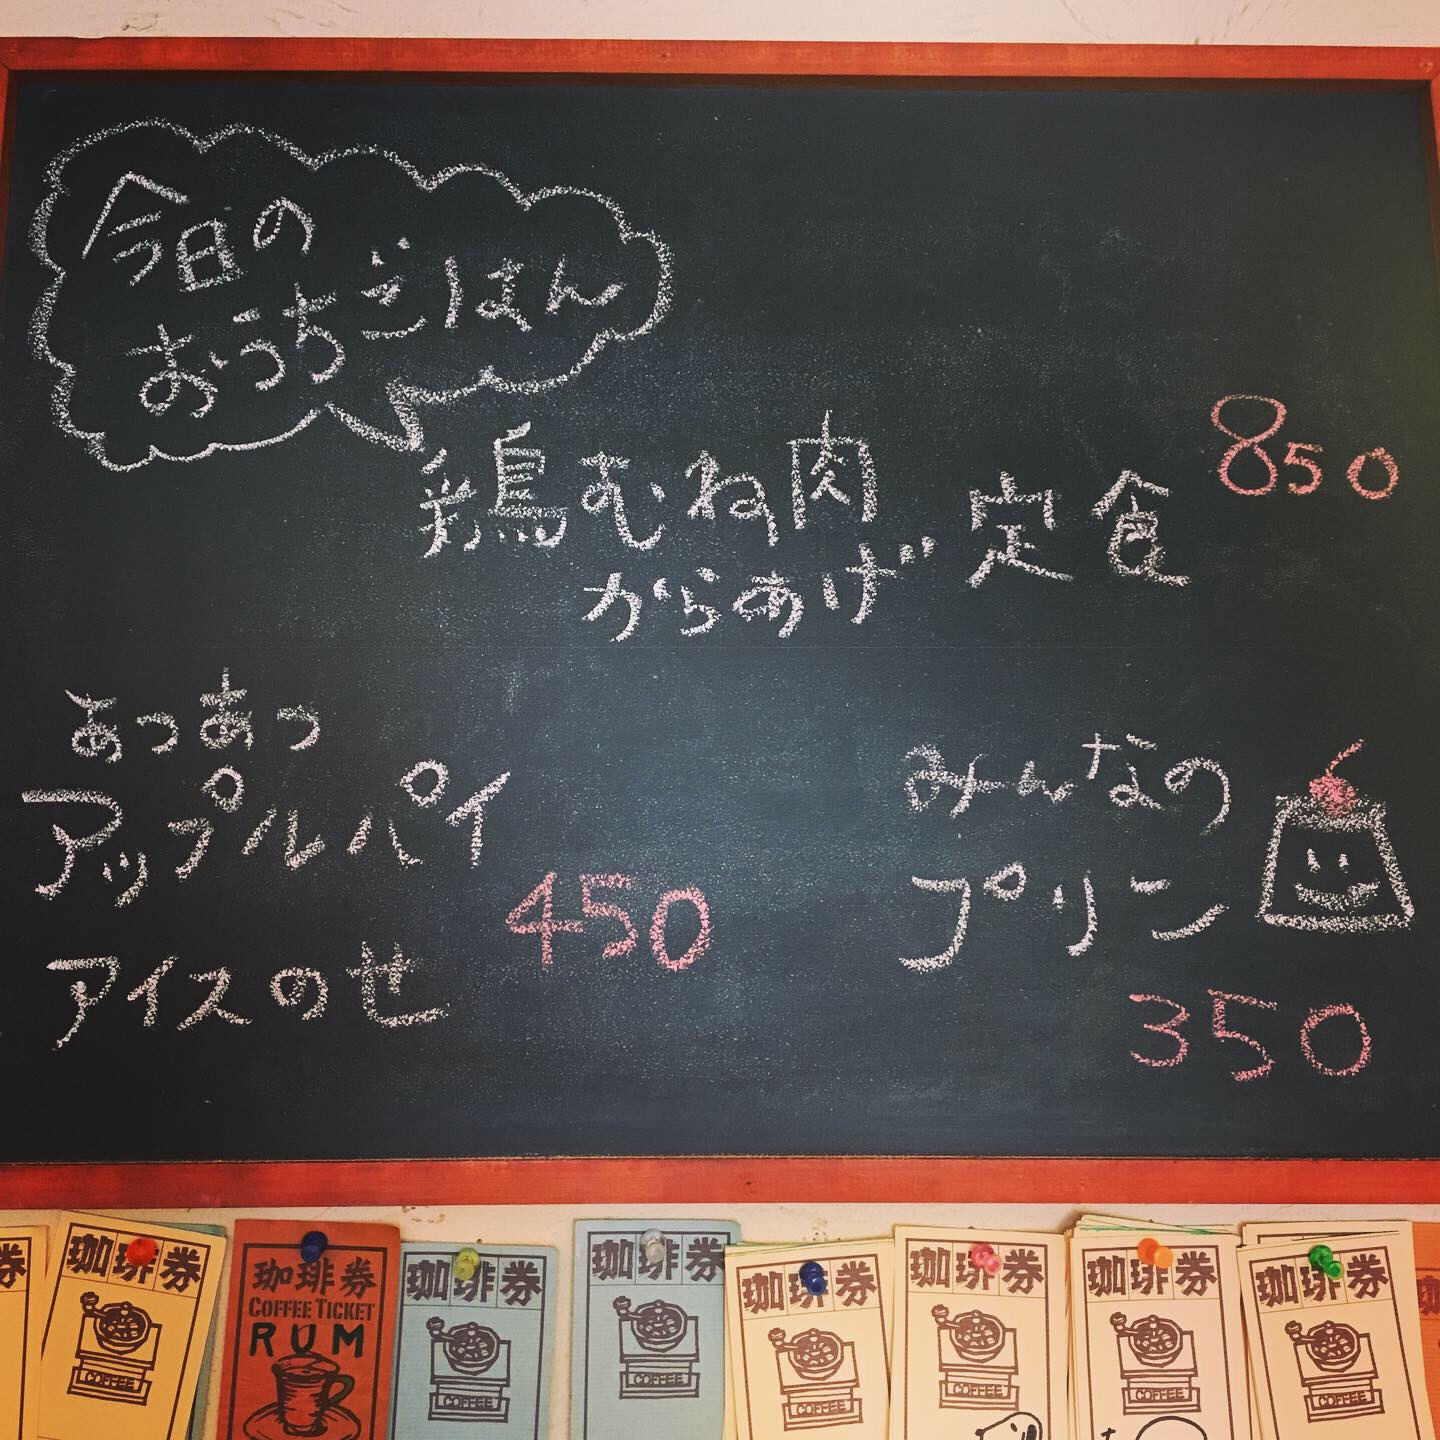 今日の
おうちごはん
鶏むね肉
からあげ 定食 850
あつあつ
アップルパイ
アイスのせ 450
みんなの
プリン
350
珈琲券
COFFEE
珈琲券
COFFEE TICKET
RUM
珈琲券
COFFEE
珈琲券
COFFEE
珈琲券
COFFEE
珈琲券
COFFEE
珈琲券
COFFEE
珈琲券
COFFEE